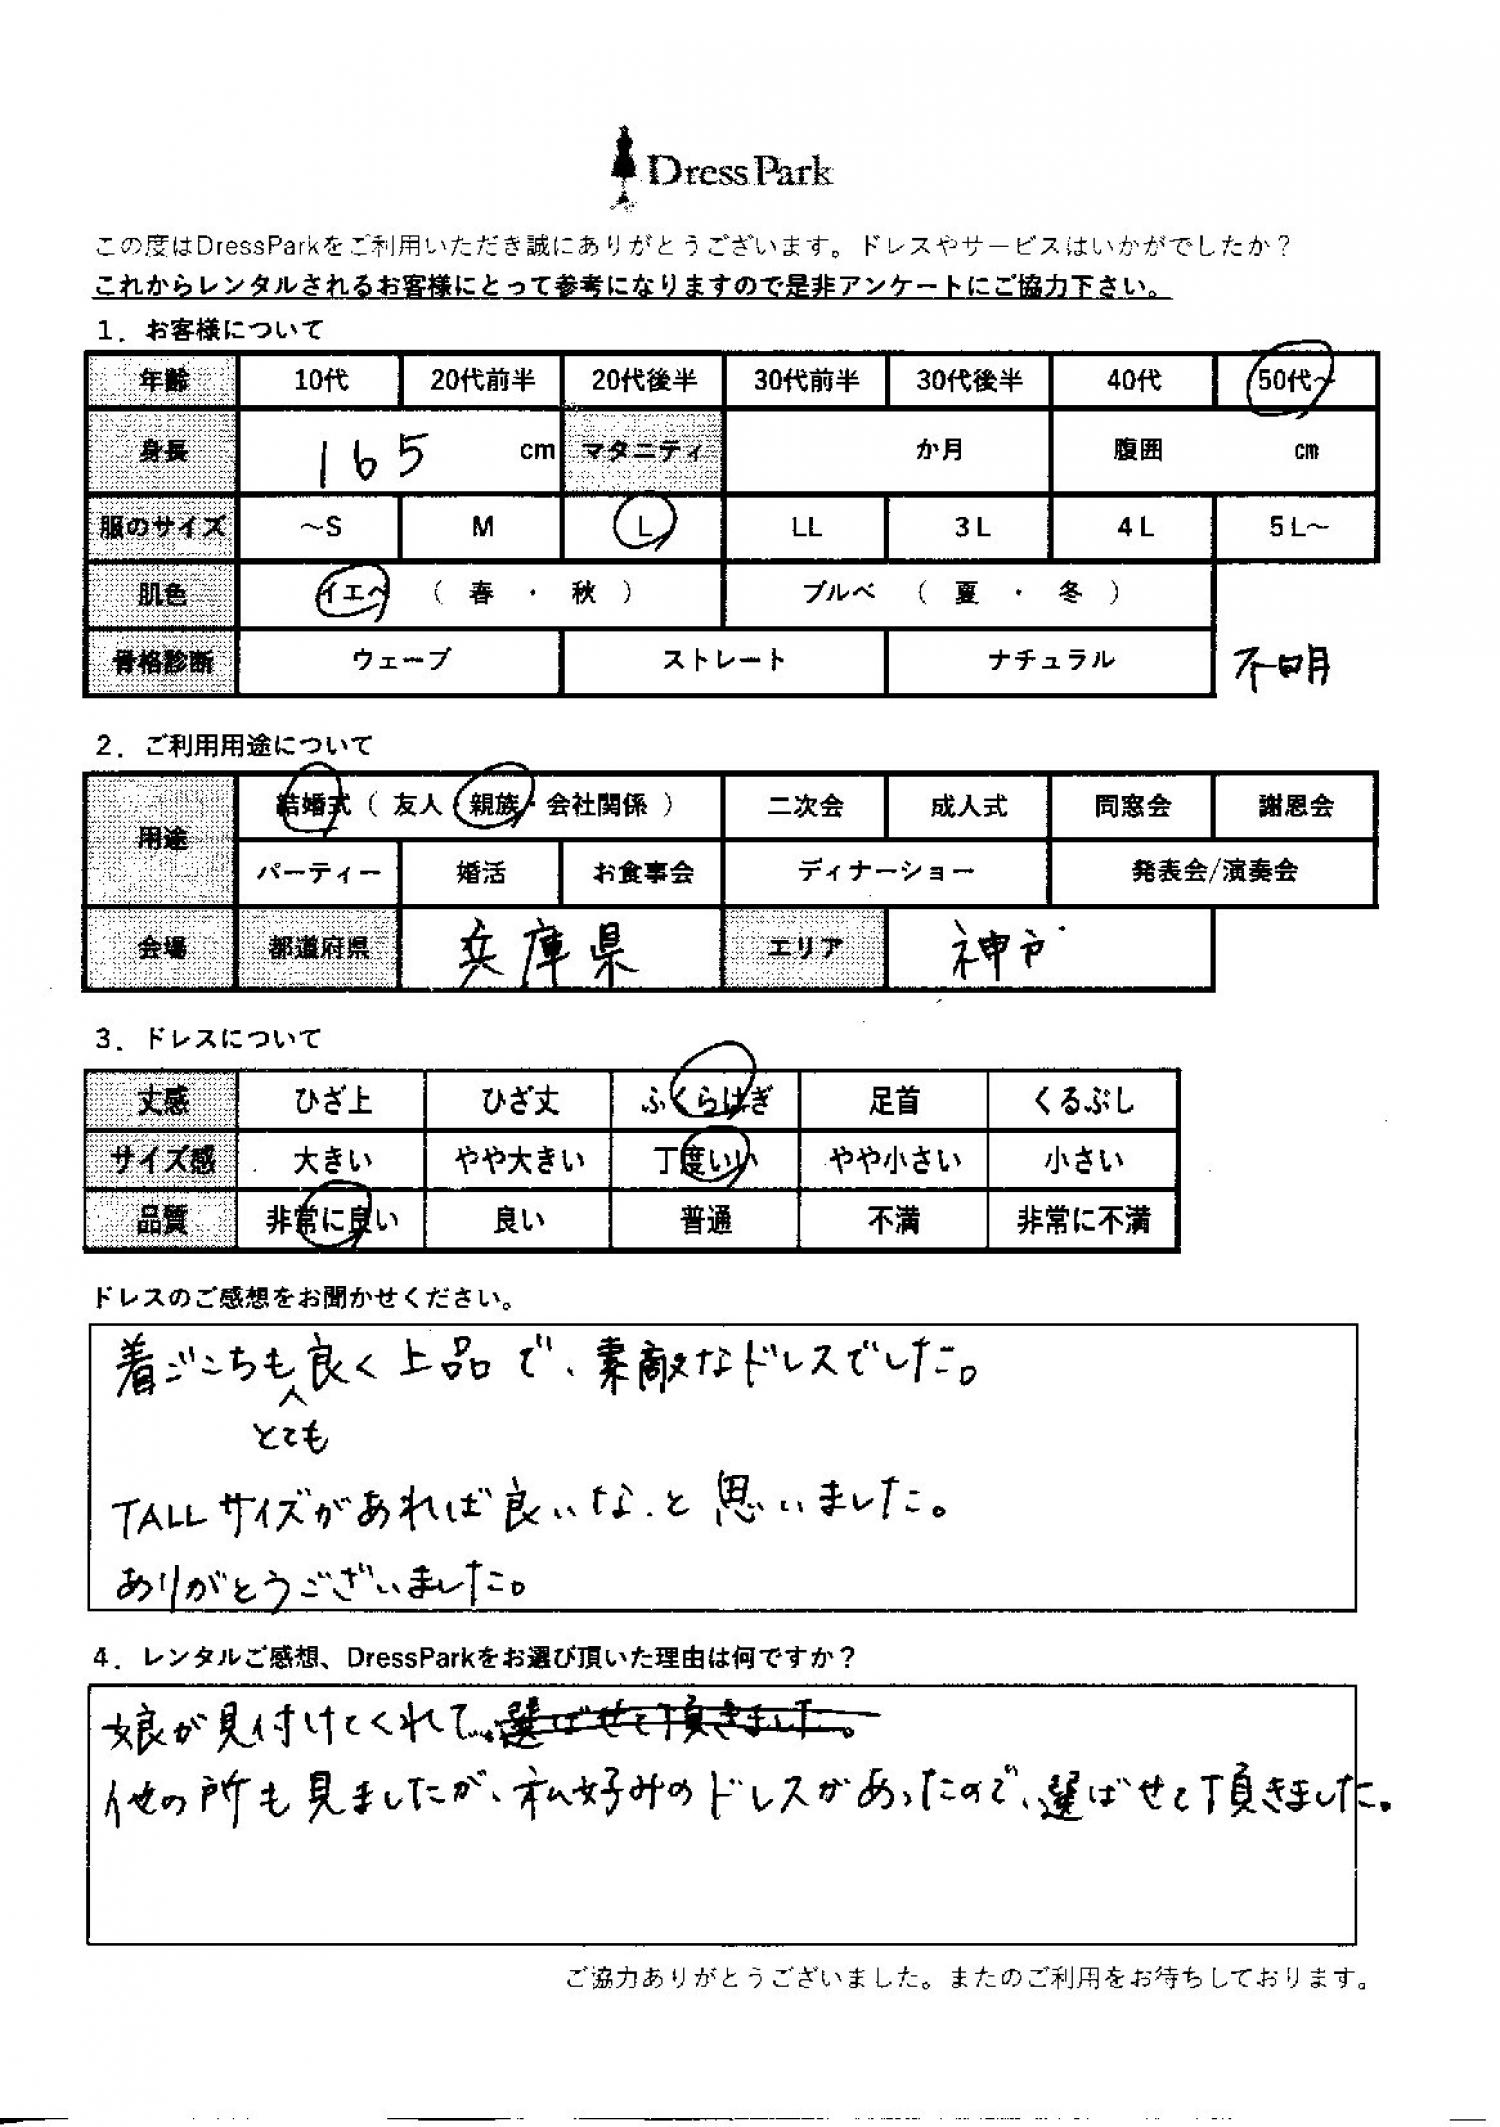 DressPark
この度はDressParkをご利用いただき誠にありがとうございます。ドレスやサービスはいかがでしたか？
これからレンタルされるお客様にとって参考になりますので是非アンケートにご協力下さい。
1．お客様について
年齢 10代 20代前半 20代後半 30代前半 30代後半 40代 50代～
身長 165 cm マタニティ か月 腹囲 cm
服のサイズ ～S M L LL 3L 4L 5L～
肌色 イエベ （ 春 ・ 秋 ） ブルベ （ 夏 ・ 冬 ）
骨格診断 ウェーブ ストレート ナチュラル 不明
2．ご利用用途について
用途 結婚式（ 友人・親族・会社関係 ） 二次会 成人式 同窓会 謝恩会
パーティー 婚活 お食事会 ディナーショー 発表会/演奏会
会場 都道府県 兵庫県 エリア 神戸
3．ドレスについて
丈感 ひざ上 ひざ丈 ふくらはぎ 足首 くるぶし
サイズ感 大きい やや大きい 丁度いい やや小さい 小さい
品質 非常に良い 良い 普通 不満 非常に不満
ドレスのご感想をお聞かせください。
着ごこちも良く上品で、素敵なドレスでした。
とても
TALLサイズがあれば良いな、と思いました。
ありがとうございました。
4．レンタルご感想、DressParkをお選び頂いた理由は何ですか？
娘が見付けてくれて、選ばせて頂きました。
他の所も見ましたが、私好みのドレスがあったので、選ばせて頂きました。
ご協力ありがとうございました。またのご利用をお待ちしております。